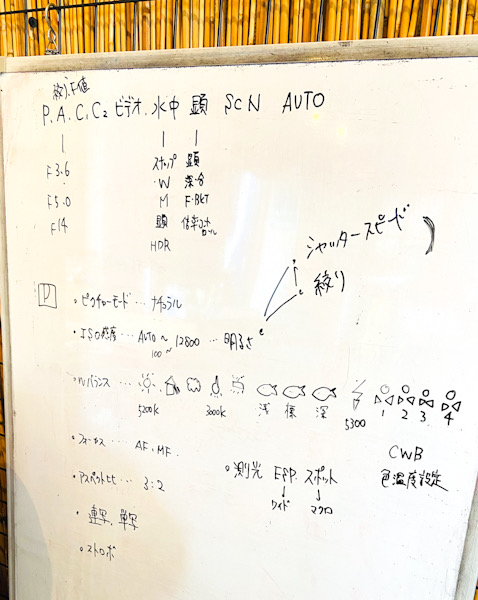 絞り、F値
P. A. C1 C2 ビデオ. 水中 顕 SCN AUTO
F3.6
F5.0
F14
スナップ
W
M
顕
HDR
顕
深・合
F・BKT
倍率コントロール
シャッタースピード
絞り
P
・ピクチャーモード … ナチュラル
・ISO感度 … AUTO ~ 12800 … 明るさ
100~
・Wバランス … 浅 標 深
5200K 3000K 5300 1 2 3 4
・フォーカス … AF. MF.
CWB
色温度設定
・アスペクト比 … 3:2
・測光 ESP スポット
ワイド マクロ
・連写、単写
・ストロボ